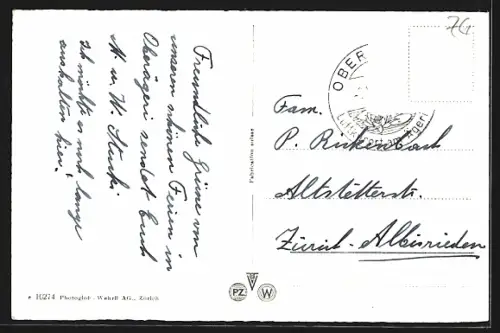 Freundliche Grüsse von
unseren schönen Ferien in
Oberägeri sendet Euch
M. u. W. Stucki.
ich möchte es noch lange
aushalten hier!
76
OBER
Luftkurort am Ägeri
Fam.
P. Rickenbach
Altstetterstr.
Zürich-Albisrieden
Fabrication suisse
10274 Photoglob-Wehrli AG., Zürich
PZ
W